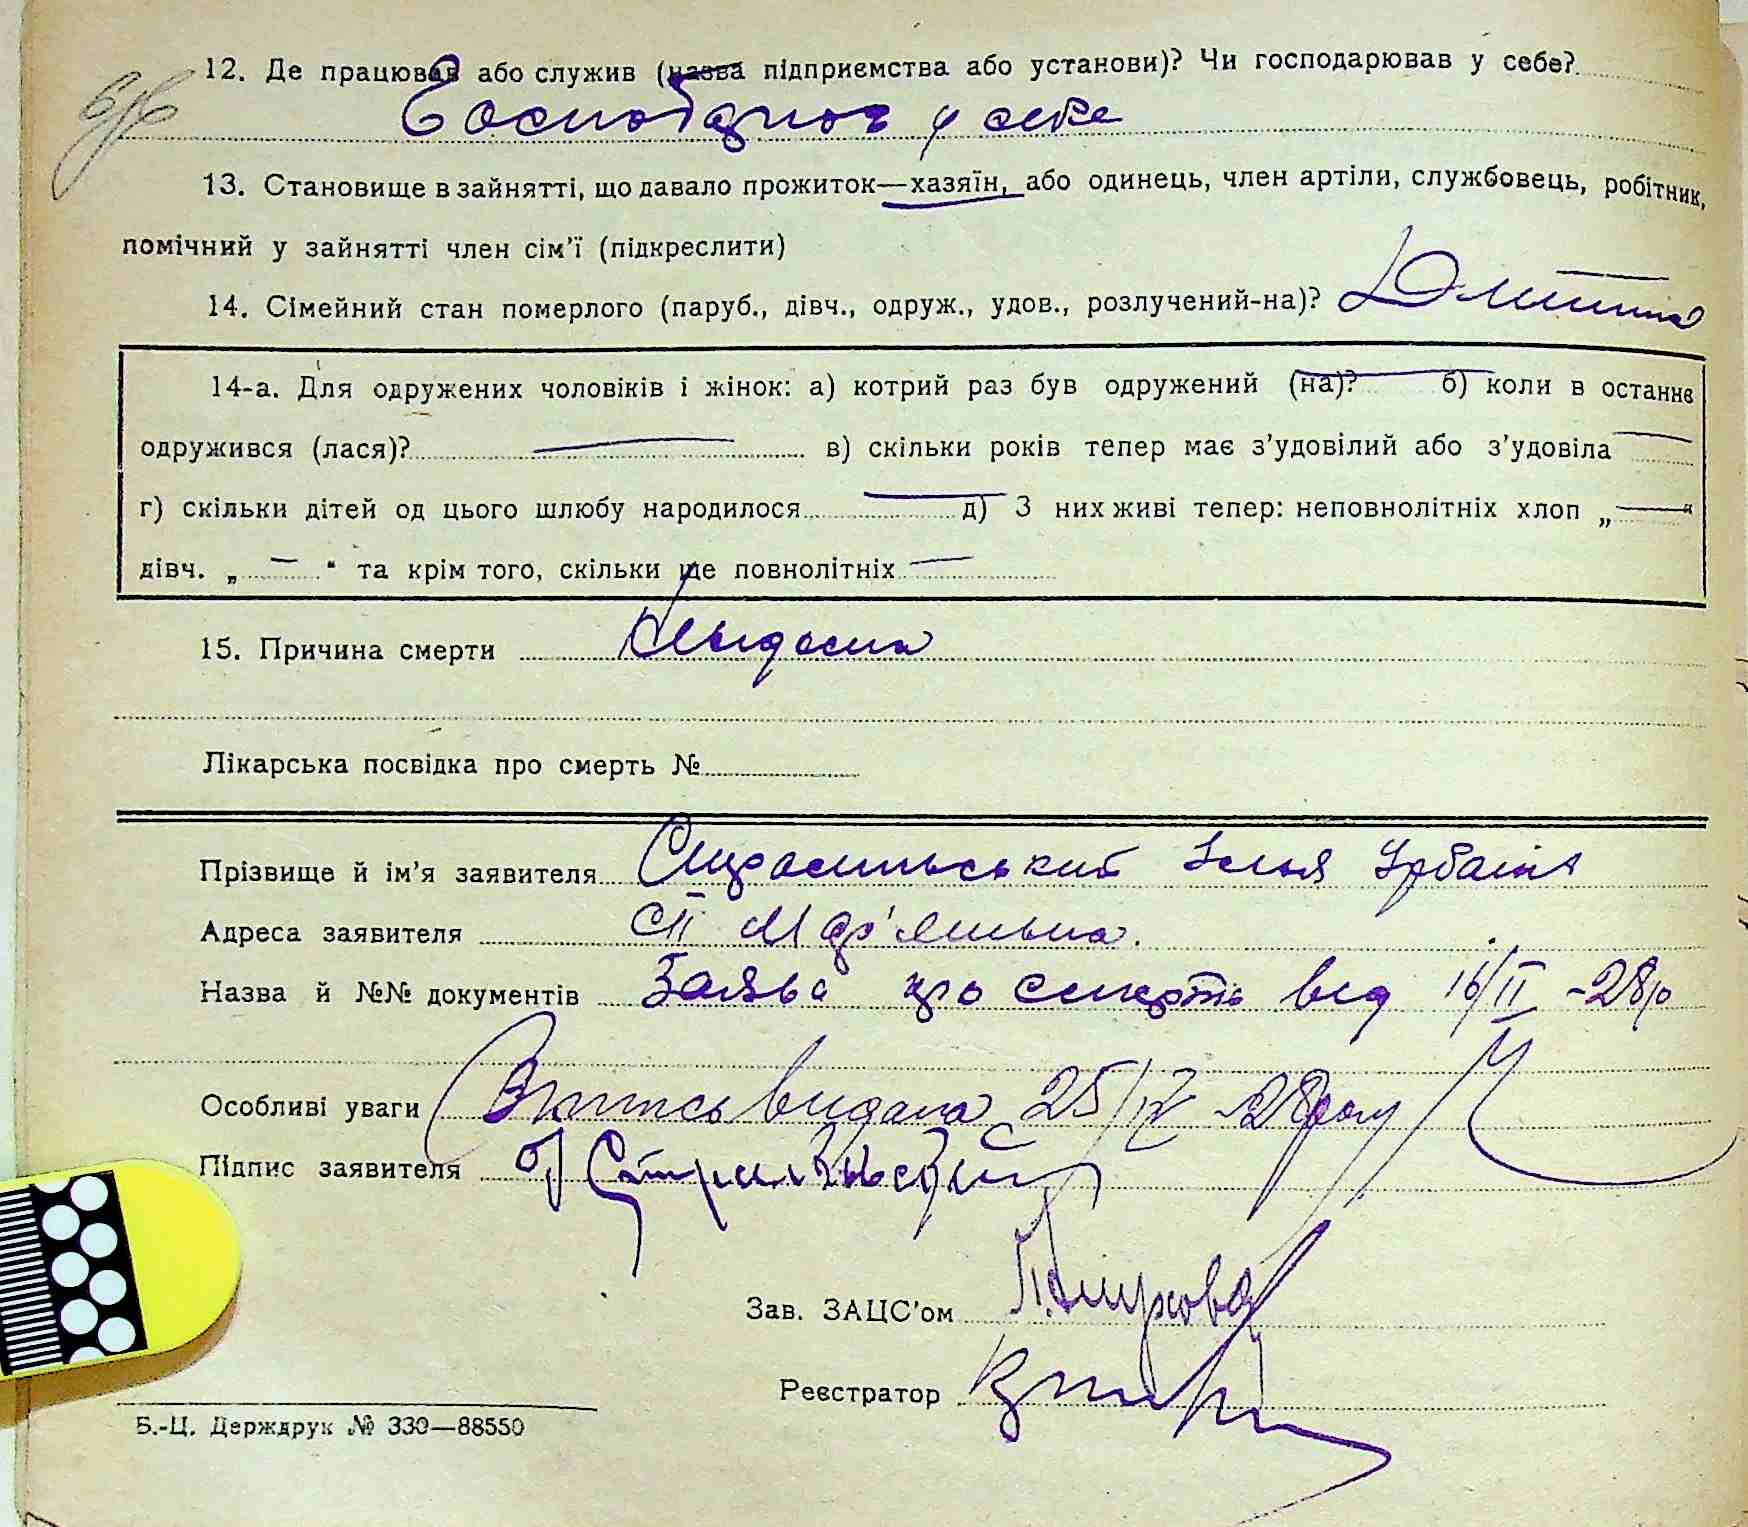 12. Де працював або служив (назва підприємства або установи)? Чи господарював у себе?
у себе
13. Становище в зайнятті, що давало прожиток—хазяїн, або одинець, член артіли, службовець, робітник,
помічний у зайнятті член сім'ї (підкреслити)
14. Сімейний стан померлого (паруб., дівч., одруж., удов., розлучений-на)?
14-а. Для одружених чоловіків і жінок: а) котрий раз був одружений (на)? б) коли в останнє
одружився (лася)? в) скільки років тепер має з'удовілий або з'удовіла
г) скільки дітей од цього шлюбу народилося д) З них живі тепер: неповнолітніх хлоп „ — “
дівч. „ — “ та крім того, скільки ще повнолітніх —
15. Причина смерти
Лікарська посвідка про смерть №
Прізвище й ім'я заявителя
Адреса заявителя
Назва й №№ документів Заява про смерть від 16/II -28р
Особливі уваги Випись видана 25/IV 28року
Підпис заявителя
Зав. ЗАЦС'ом
Реєстратор
Б.-Ц. Держдрук № 330—88550